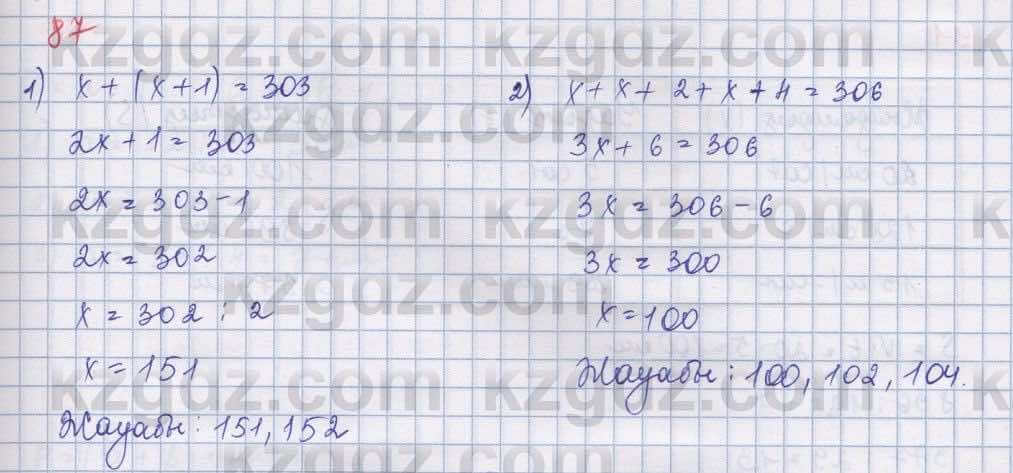 87
1) x + (x + 1) = 303
2x + 1 = 303
2x = 303 - 1
2x = 302
x = 302 : 2
x = 151
Жауабы: 151, 152
2) x + x + 2 + x + 4 = 306
3x + 6 = 306
3x = 306 - 6
3x = 300
x = 100
Жауабы: 100, 102, 104.
kzgdz.com kzgdz.com
kzgdz.com kzgdz.com
kzgdz.com kzgdz.com
kzgdz.com kzgdz.com
kzgdz.com kzgdz.com